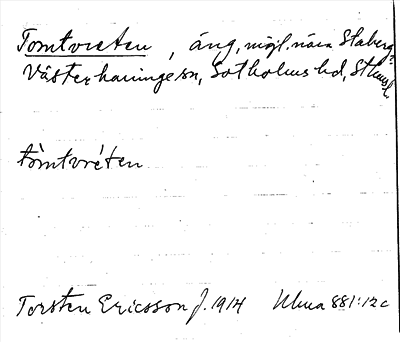 Tomtvreten, äng, möjl. nära Staberg?
Västerhaninge sn, Sotholms hd, Sthms l.
tò̀mtvré̀ten
Torsten Ericsson f. 1914 Ulma 881:12c